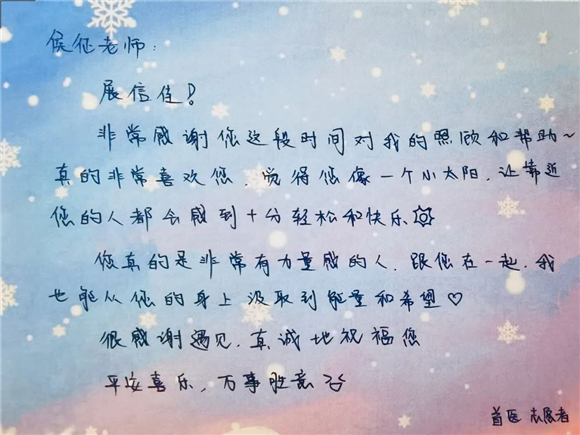 侯征老师：
展信佳！
非常感谢您这段时间对我的照顾和帮助~
真的非常喜欢您，觉得您像一个小太阳，让靠近
您的人都会感到十分轻松和快乐
您真的是非常有力量感的人，跟您在一起，我
也能从您的身上汲取到能量和希望♡
很感谢遇见，真诚地祝福您
平安喜乐，万事胜意
首医 志愿者